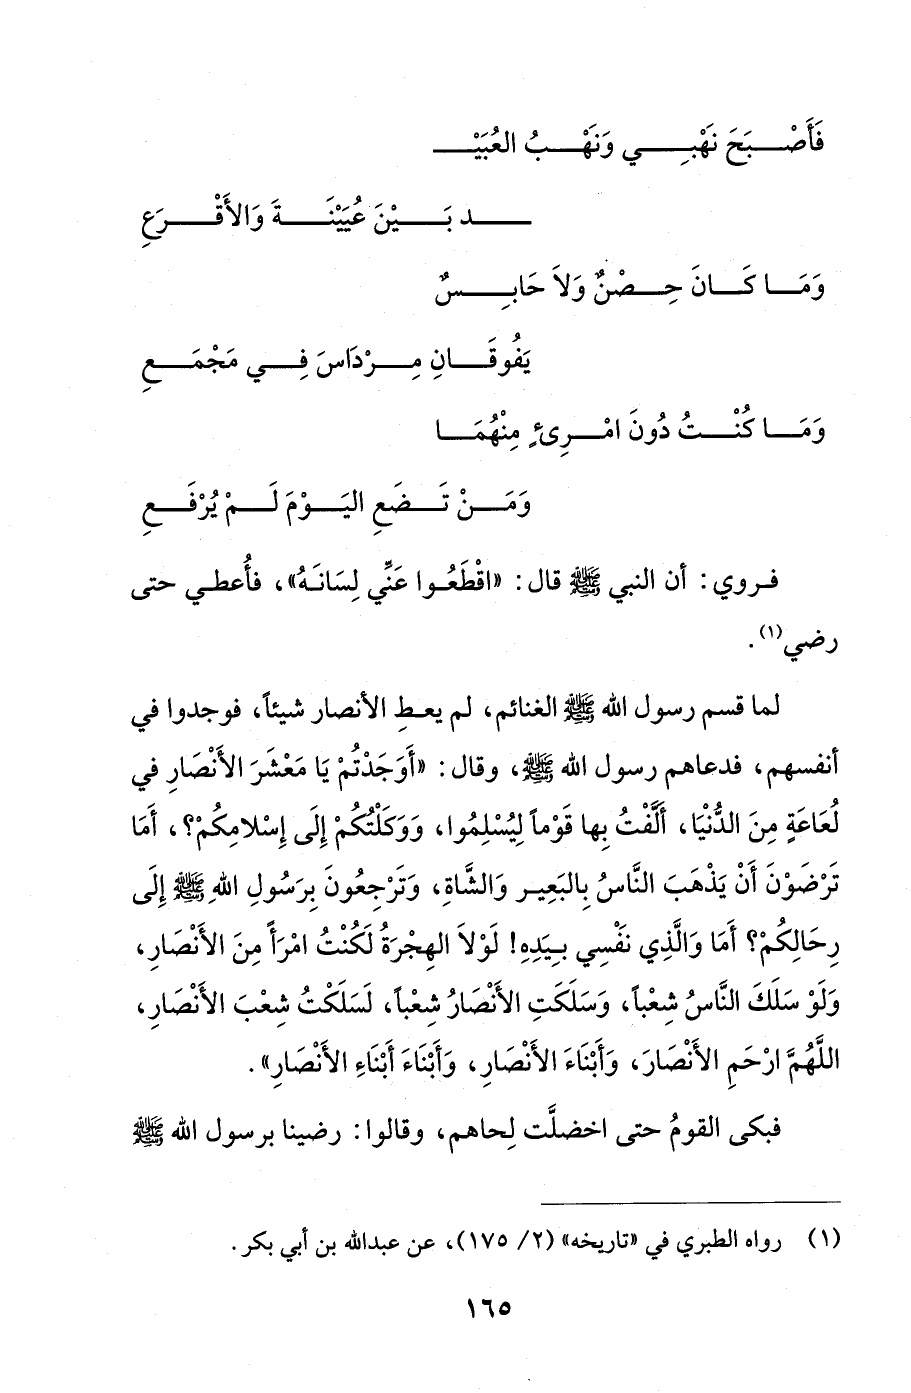 فَأَصْـــبَحَ نَهْبِـــــي وَنَهْــــبُ العُبَيْــــ
ـــــدِ بَـــيْنَ عُيَيْنَـــــةَ وَالأَقْـــرَعِ
وَمَـــا كَـــانَ حِـــصْنٌ وَلاَ حَابِـــــسٌ
يَفُوقَـــانِ مِـــرْدَاسَ فِـــي مَجْمَـــعِ
وَمَـــا كُنْـــتُ دُونَ امْـــرِئٍ مِنْهُمَـــا
وَمَـــنْ تَـــضَعِ اليَـــوْمَ لَـــمْ يُرْفَـــعِ
فـروي: أن النبي ﷺ قال: «اقْطَعُـوا عَنِّي لِسَانَهُ»، فأُعطـي حتى
رضي(١).
لما قسم رسول الله ﷺ الغنائم، لم يعـطِ الأنصار شيئاً، فوجدوا في
أنفسهم، فدعاهم رسول الله ﷺ، وقال: «أَوَجَدْتُمْ يَا مَعْشَرَ الأَنْصَارِ في
لُعَاعَةٍ مِنَ الدُّنْيَا، أَلَّفْتُ بِها قَوْماً لِيُسْلِمُوا، وَوَكَلْتُكُمْ إِلَى إِسْلامِكُمْ؟، أَمَا
تَرْضَوْنَ أَنْ يَذْهَبَ النَّاسُ بِالبَعِيـرِ وَالشَّاةِ، وَتَرْجِعُونَ بِرَسُولِ اللهِ ﷺ إِلَى
رِحَالِكُمْ؟ أَمَا وَالَّذِي نَفْسِي بِيَدِهِ! لَوْلاَ الهِجْرَةُ لَكُنْتُ امْرَأً مِنَ الأَنْصَارِ،
وَلَوْ سَلَكَ النَّاسُ شِعْباً، وَسَلَكَتِ الأَنْصَارُ شِعْباً، لَسَلَكْتُ شِعْبَ الأَنْصَارِ،
اللَّهُمَّ ارْحَمِ الأَنْصَارَ، وَأَبْنَاءَ الأَنْصَارِ، وَأَبْنَاءَ أَبْنَاءِ الأَنْصَارِ».
فبكى القومُ حتى اخضلَّت لِحاهم، وقالوا: رضينا برسول الله ﷺ
(١) رواه الطبري في «تاريخه» (٢/ ١٧٥)، عن عبدالله بن أبي بكر.
١٦٥